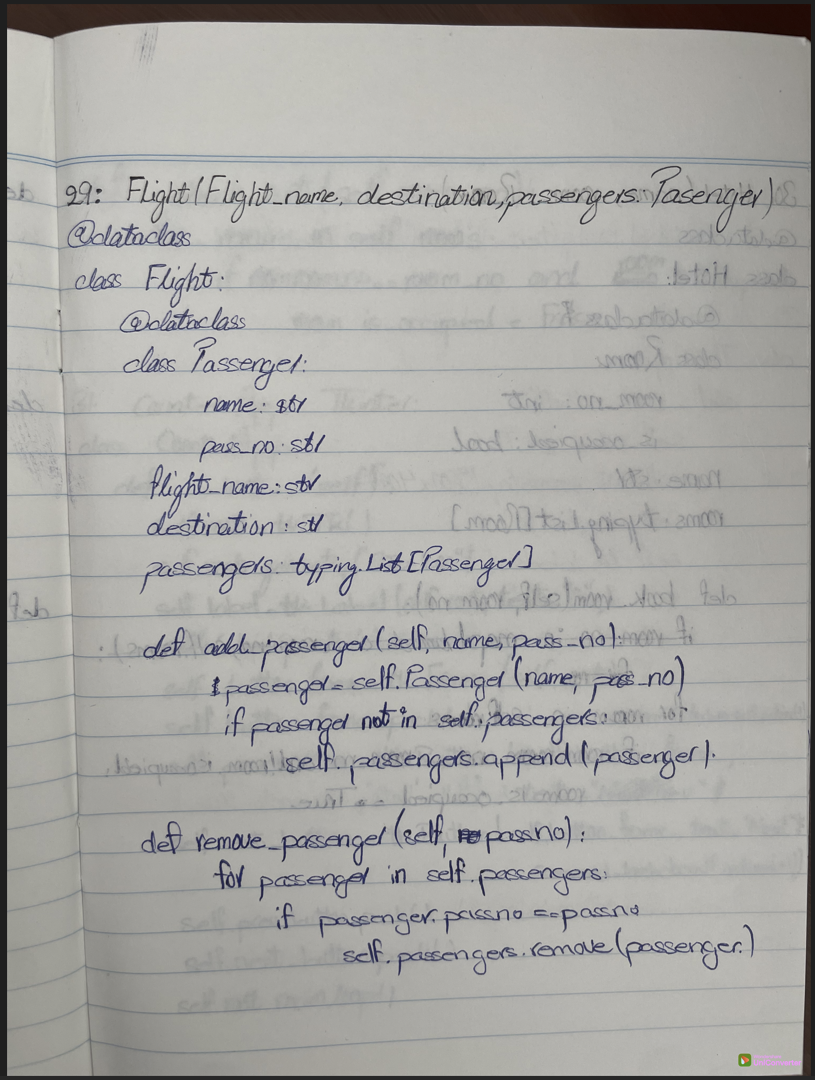 29: Flight(Flight_name, destination, passengers: Pasenger)
@dataclass
class Flight:
@dataclass
class Passenger:
name: str
pass_no: str
flight_name: str
destination: str
passengers: typing.List[Passenger]
def add_passenger(self, name, pass_no):
passenger = self.Passenger(name, pass_no)
if passenger not in self.passengers:
self.passengers.append(passenger).
def remove_passenger(self, passno):
for passenger in self.passengers:
if passenger.passno == passno
self.passengers.remove(passenger.)